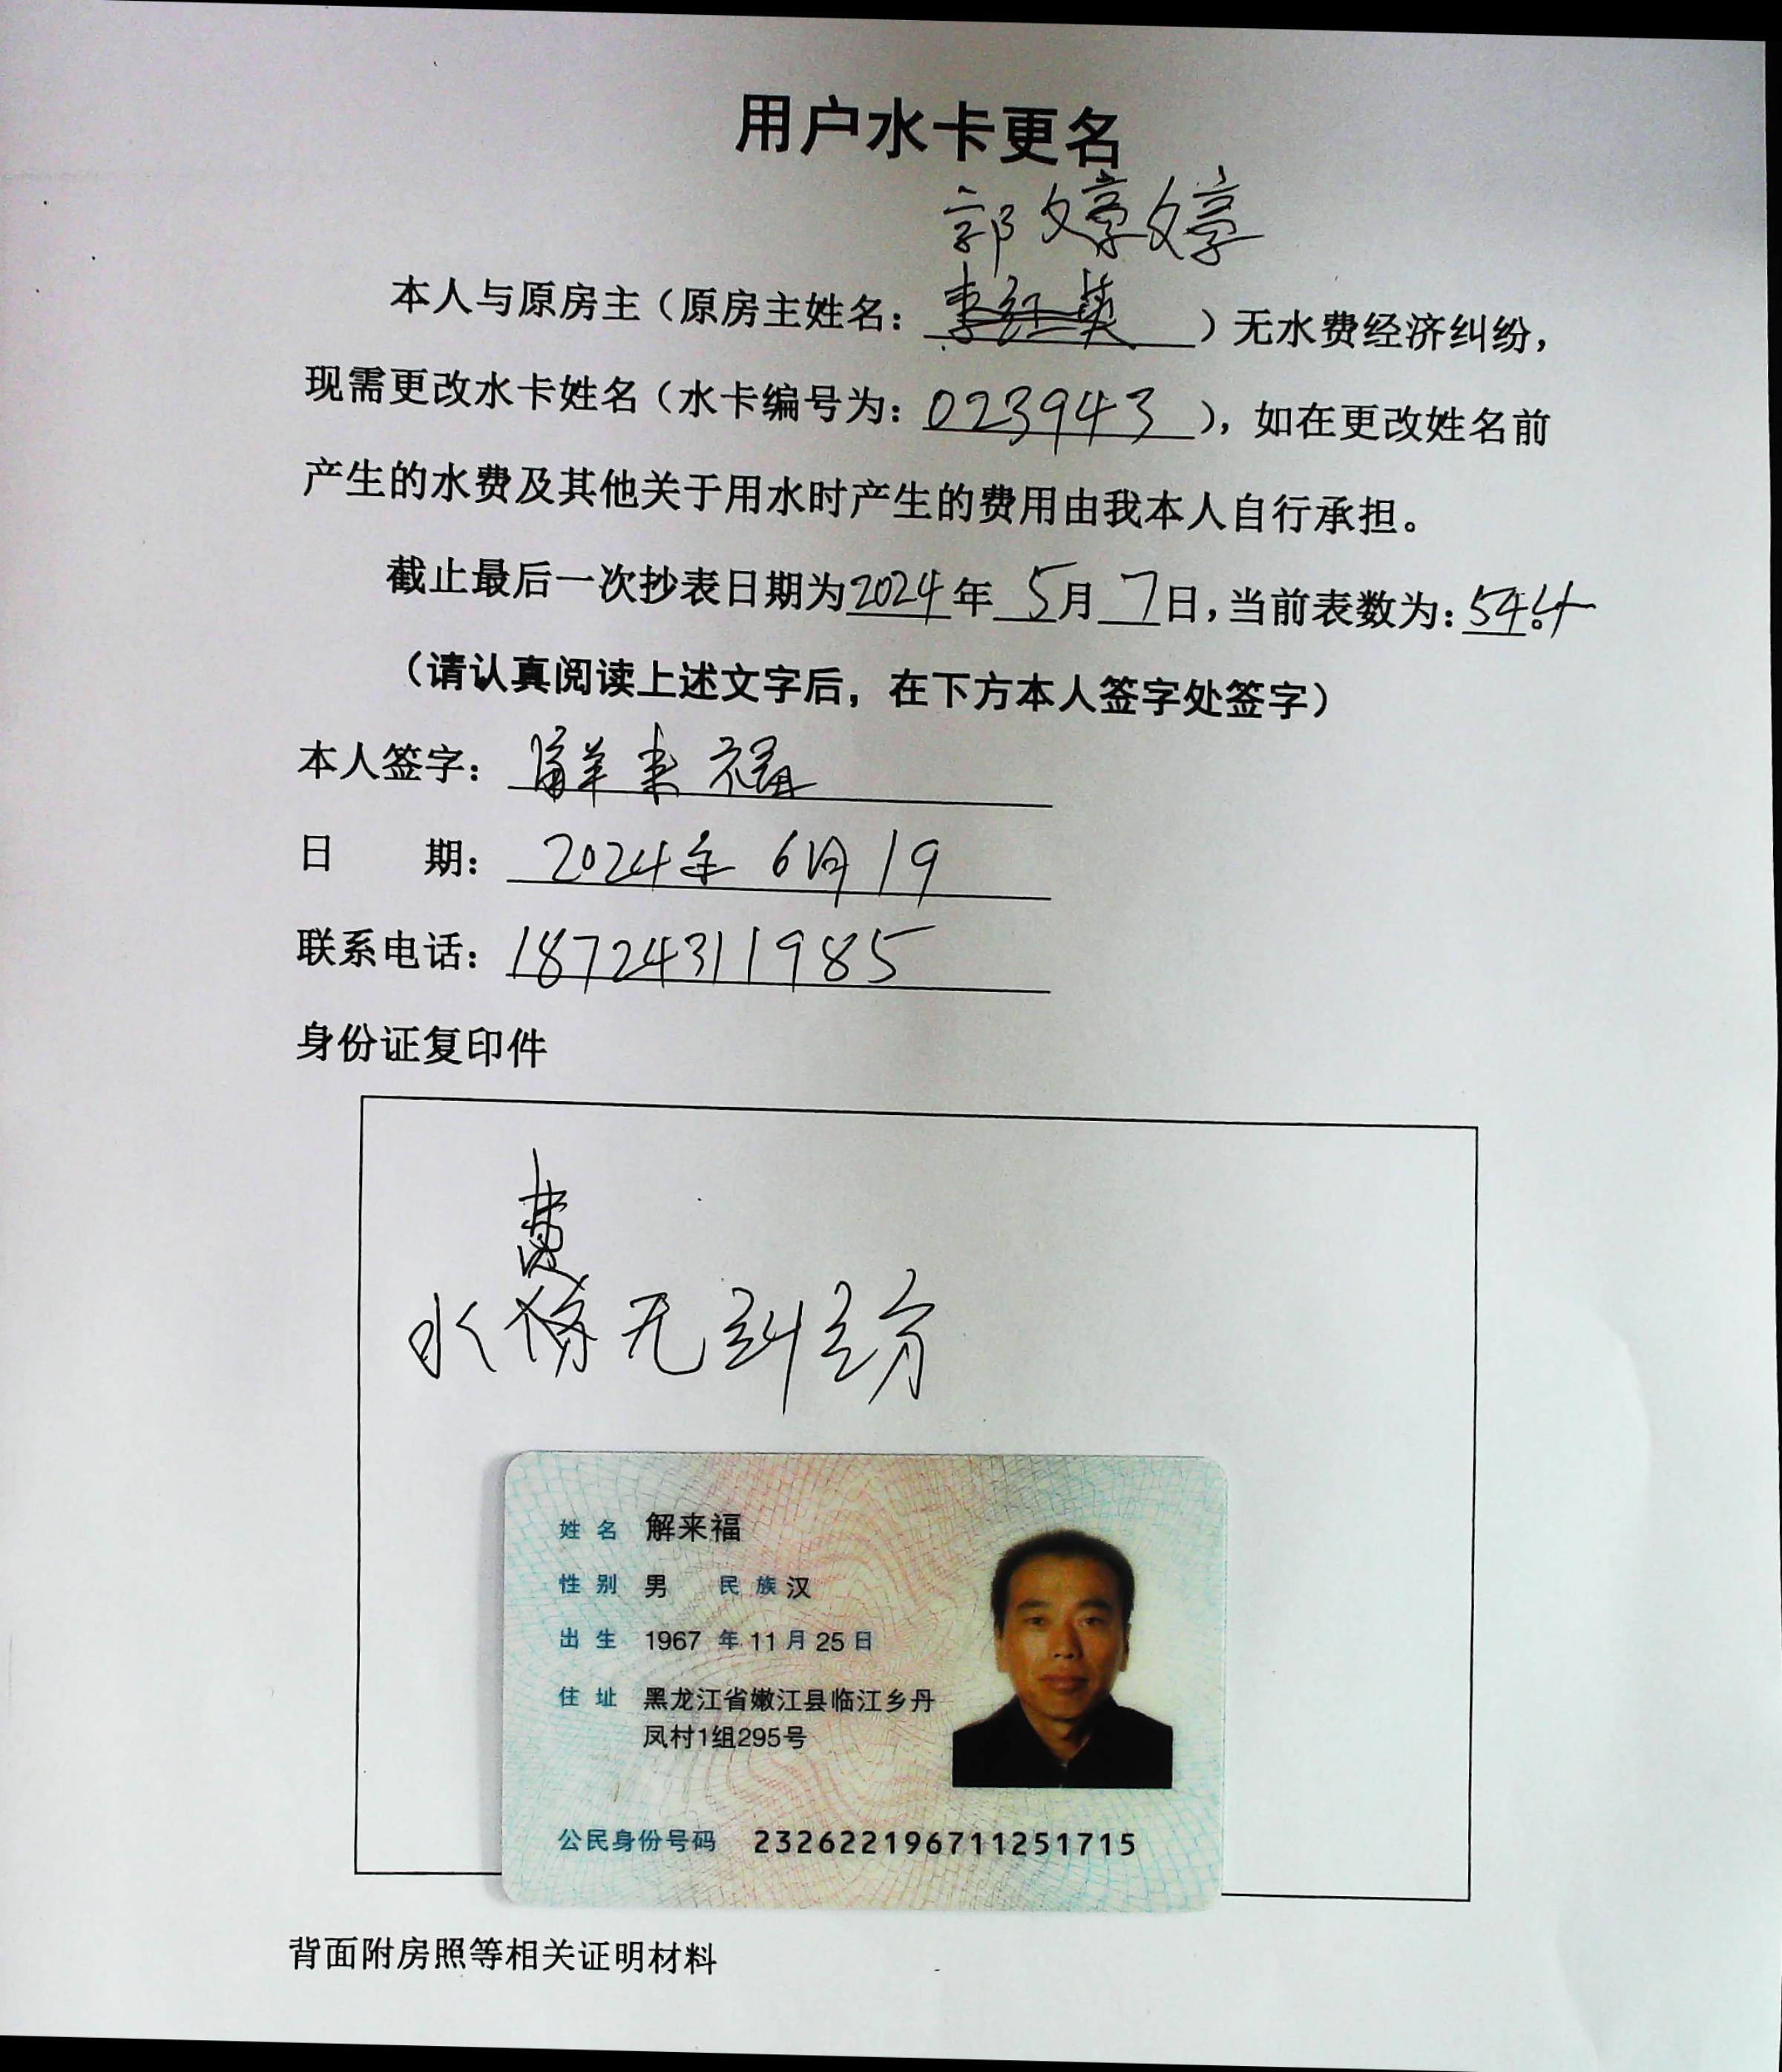 用户水卡更名
郭婷婷
本人与原房主（原房主姓名：李红英）无水费经济纠纷，
现需更改水卡姓名（水卡编号为：023943），如在更改姓名前
产生的水费及其他关于用水时产生的费用由我本人自行承担。
截止最后一次抄表日期为2024年5月7日，当前表数为：544。
（请认真阅读上述文字后，在下方本人签字处签字）
本人签字：解来福
日 期：2024年6月19
联系电话：18724311985
身份证复印件
费
水 无纠纷
姓名 解来福
性别 男 民族 汉
出生 1967 年 11 月 25 日
住址 黑龙江省嫩江县临江乡丹
凤村1组295号
公民身份号码 232622196711251715
背面附房照等相关证明材料